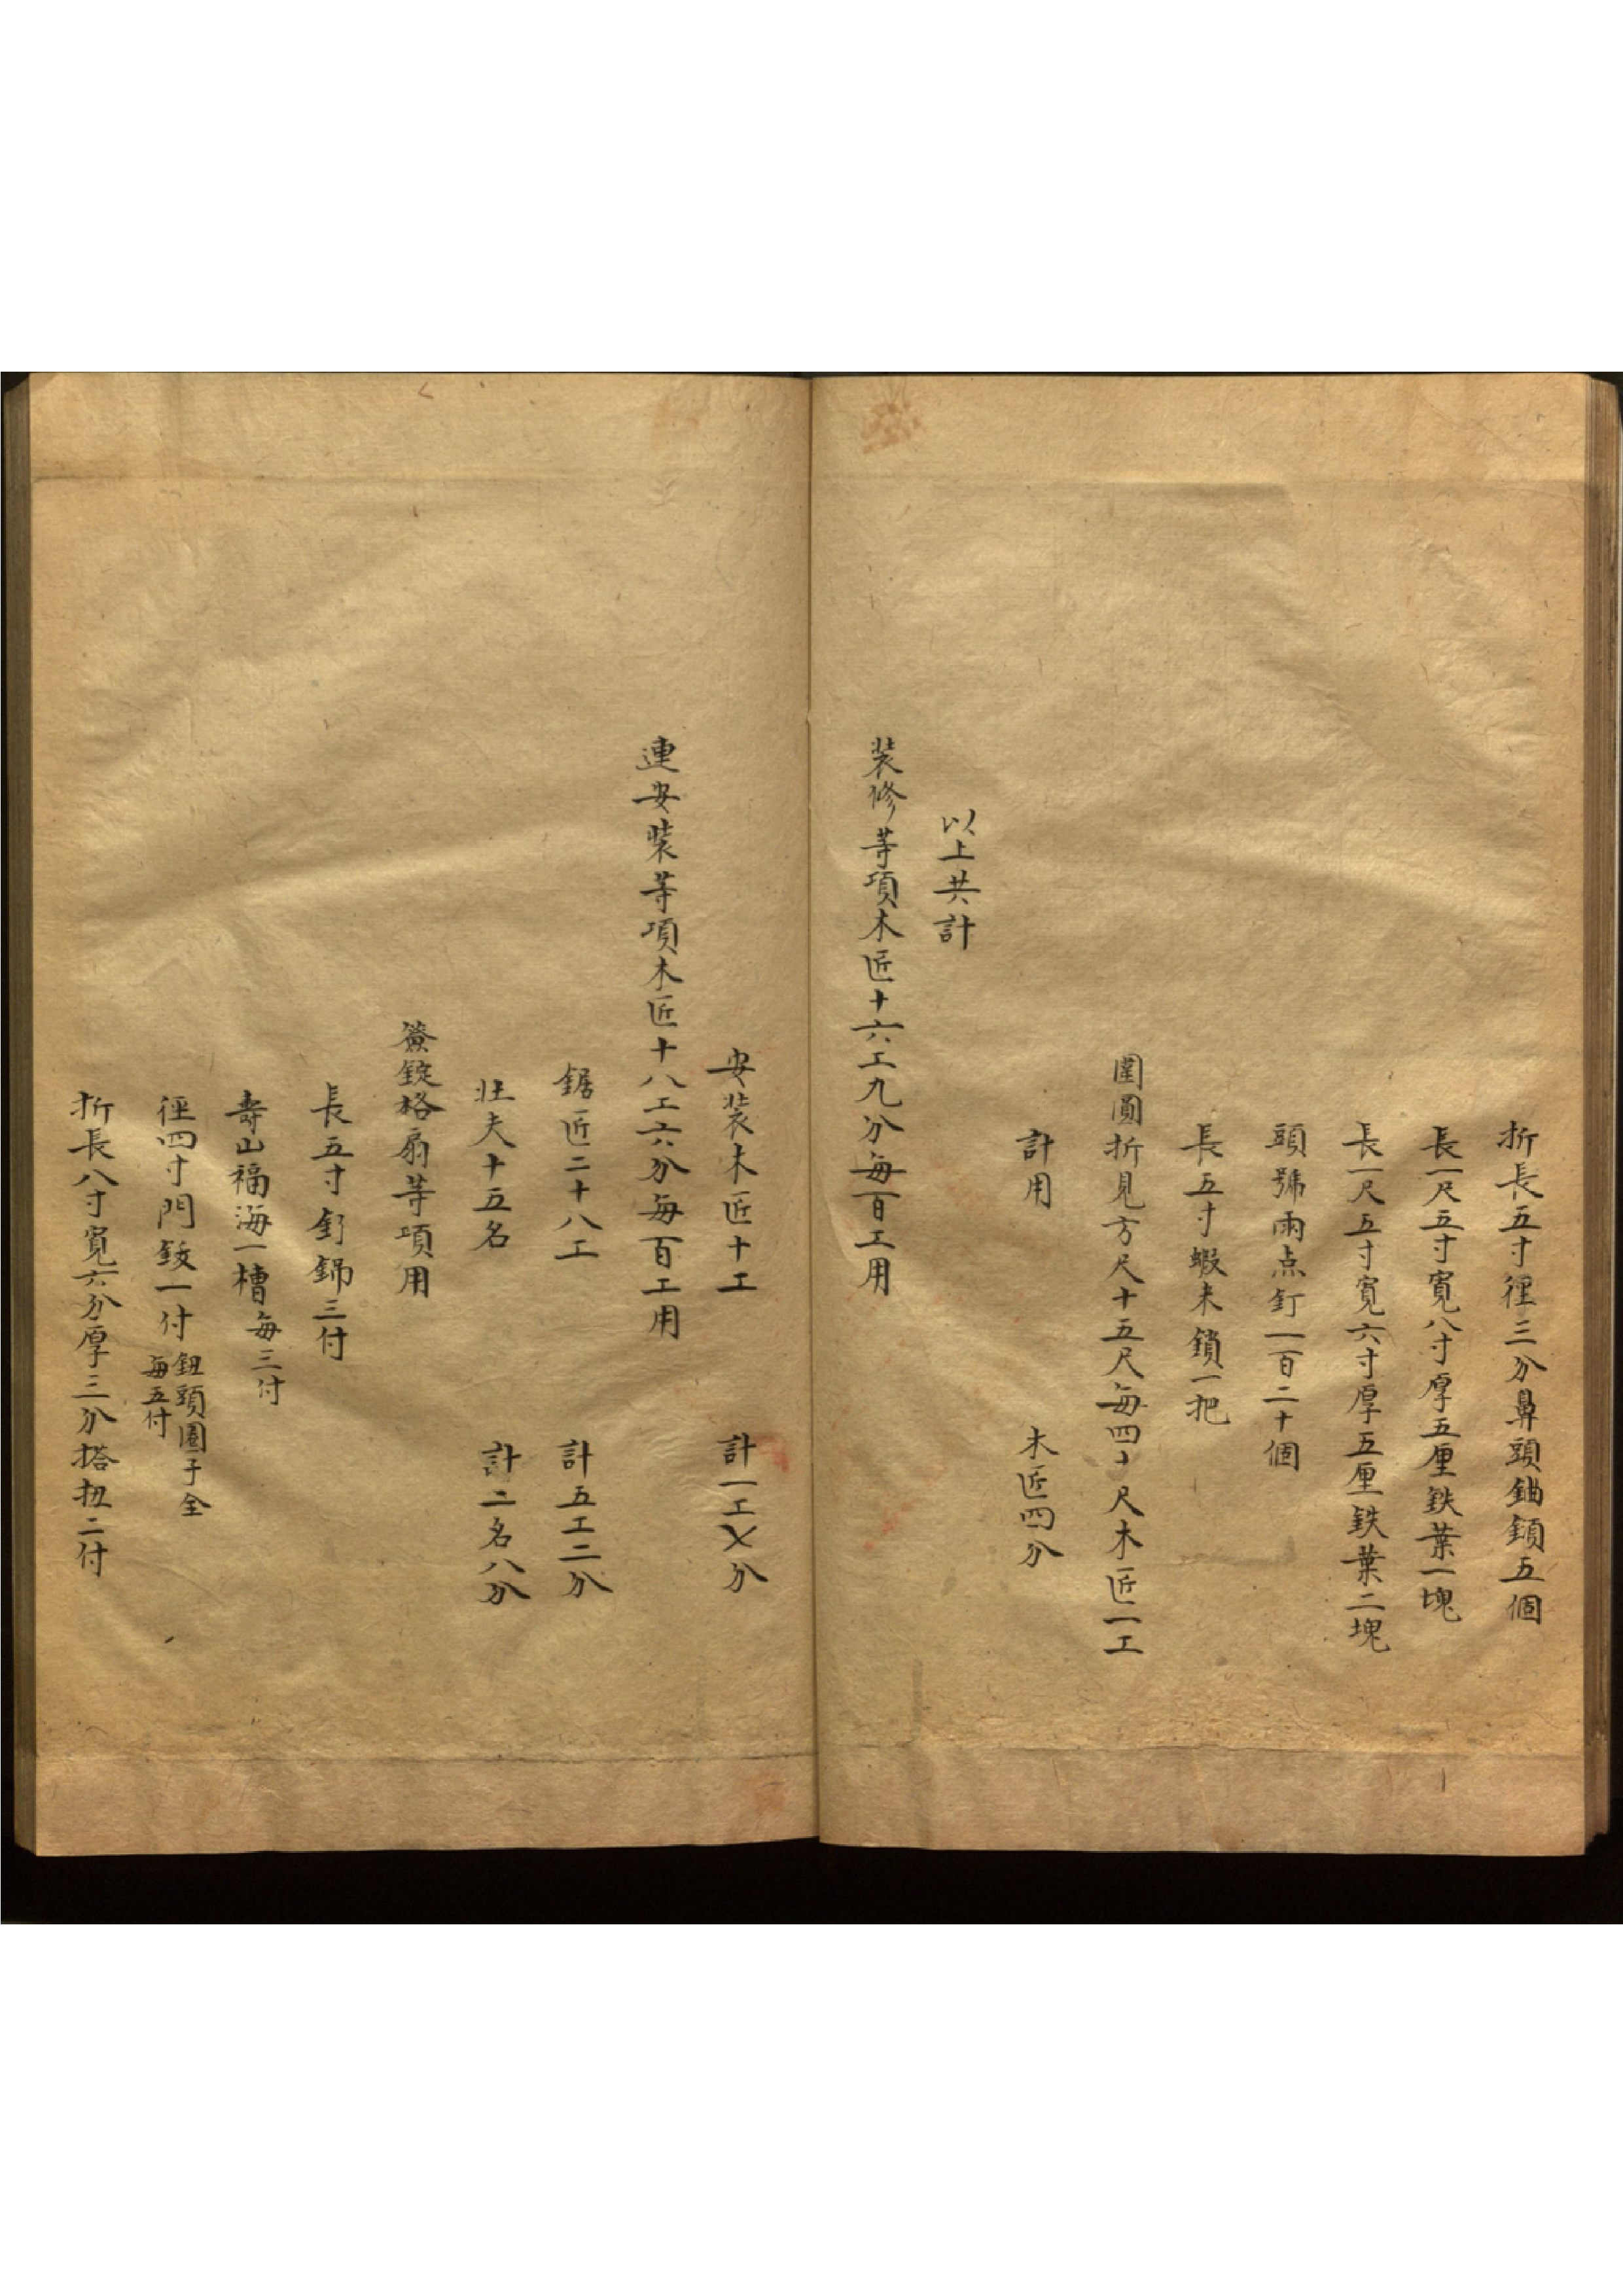 折長五寸徑三分鼻頭鈾鎖五個
長一尺五寸寬八寸厚五厘鉄葉一塊
長一尺五寸寬六寸厚五厘鉄葉二塊
頭號兩点釘一百二十個
長五寸蝦末鎖一把
圍圓折見方尺十五尺每四十尺木匠一工
計用 木匠四分
以上共計
装修等項木匠十六工九分每百工用
安装木匠十工 計一工〤分
連安装等項木匠十八工六分每百工用
鋸匠二十八工 計五工二分
壮夫十五名 計二名八分
簽錠槅扇等項用
長五寸釕鋦三付
壽山福海一槽每三付
徑四寸門鈸一付 鈕頭圈子全
每五付
折長八寸寬六分厚三分搭扭二付